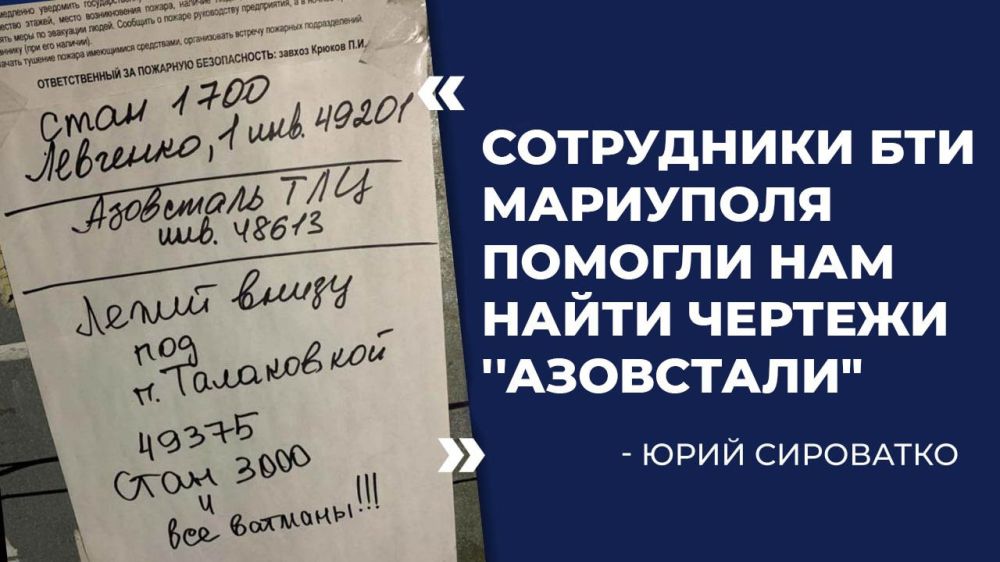 медленно уведомить государственную
ество этажей, место возникновения пожара, наличие
ять меры по эвакуации людей. Сообщить о пожаре руководству предприятия, а в ночное
ннику (при его наличии).
ачать тушение пожара имеющимися средствами, организовать встречу пожарных подразделений.
ОТВЕТСТВЕННЫЙ ЗА ПОЖАРНУЮ БЕЗОПАСНОСТЬ: завхоз Крюков П.И.
Стан 1700
Левченко, 1 инв. 49201
Азовсталь ТЛЦ
инв. 48613
Лежит внизу
под
п. Талаковкой
49375
Стан 3000
и
все ватманы!!!
«
СОТРУДНИКИ БТИ
МАРИУПОЛЯ
ПОМОГЛИ НАМ
НАЙТИ ЧЕРТЕЖИ
''АЗОВСТАЛИ"
»
- ЮРИЙ СИРОВАТКО